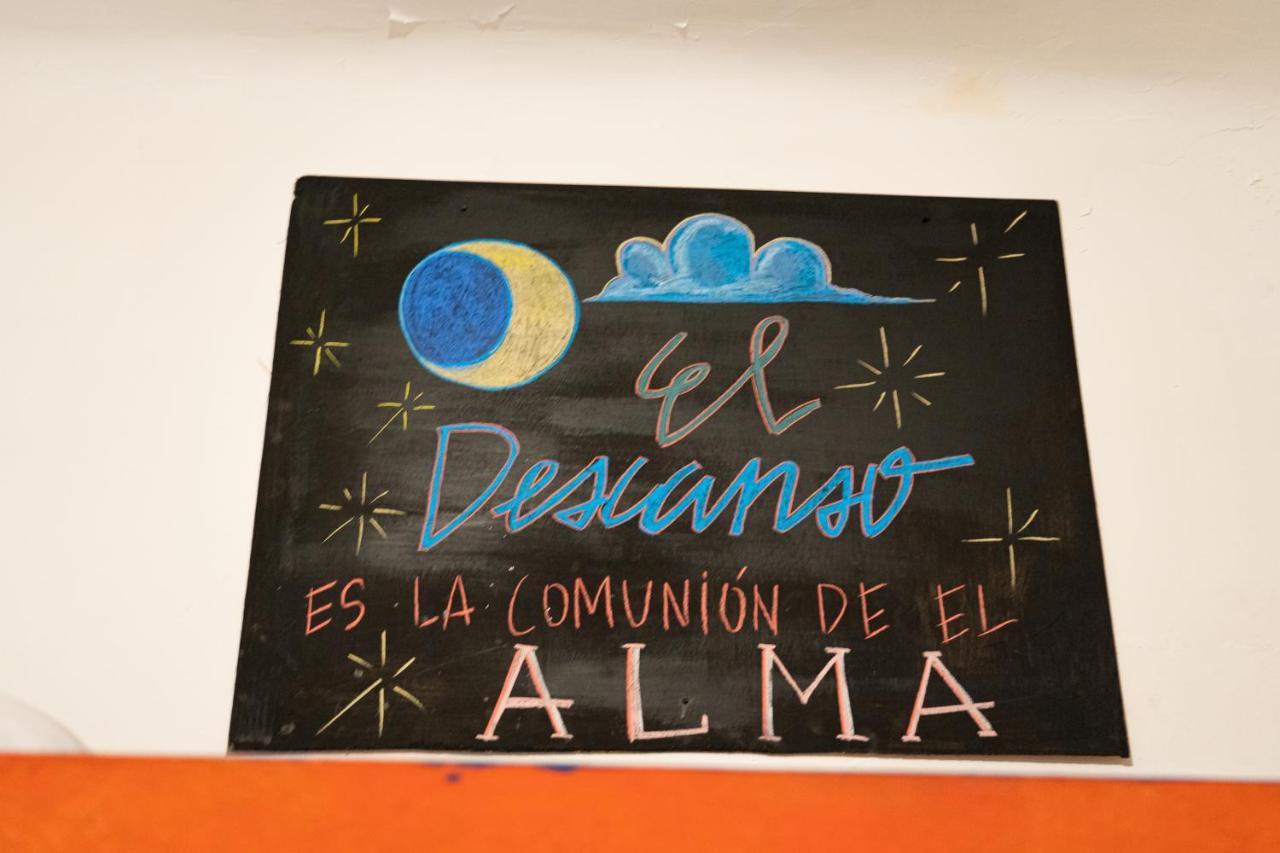 el
Descanso
ES LA COMUNIÓN DE EL
ALMA